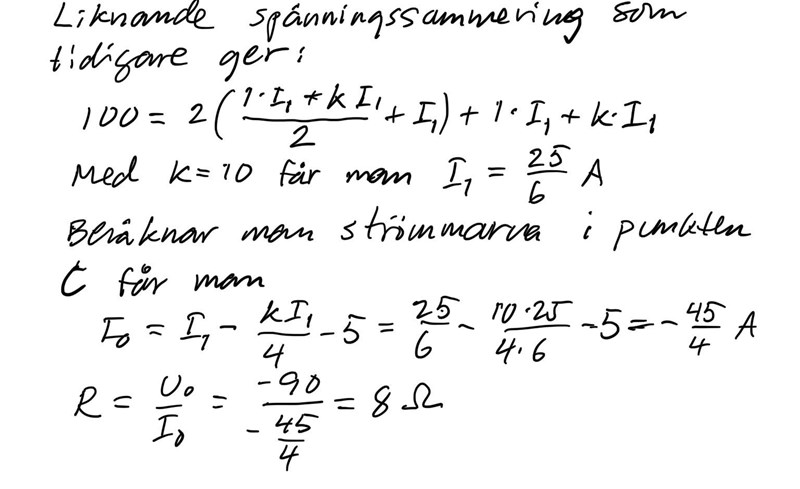 Liknande spänningssummering som
tidigare ger:
100 = 2( (1·I₁ + kI₁)/2 + I₁) + 1·I₁ + k·I₁
Med k=10 får man I₁ = 25/6 A
Beräknar man strömmarna i punkten
C får man
I₀ = I₁ - kI₁/4 - 5 = 25/6 - 10·25/4·6 - 5 = - 45/4 A
R = U₀/I₀ = -90/(-45/4) = 8 Ω